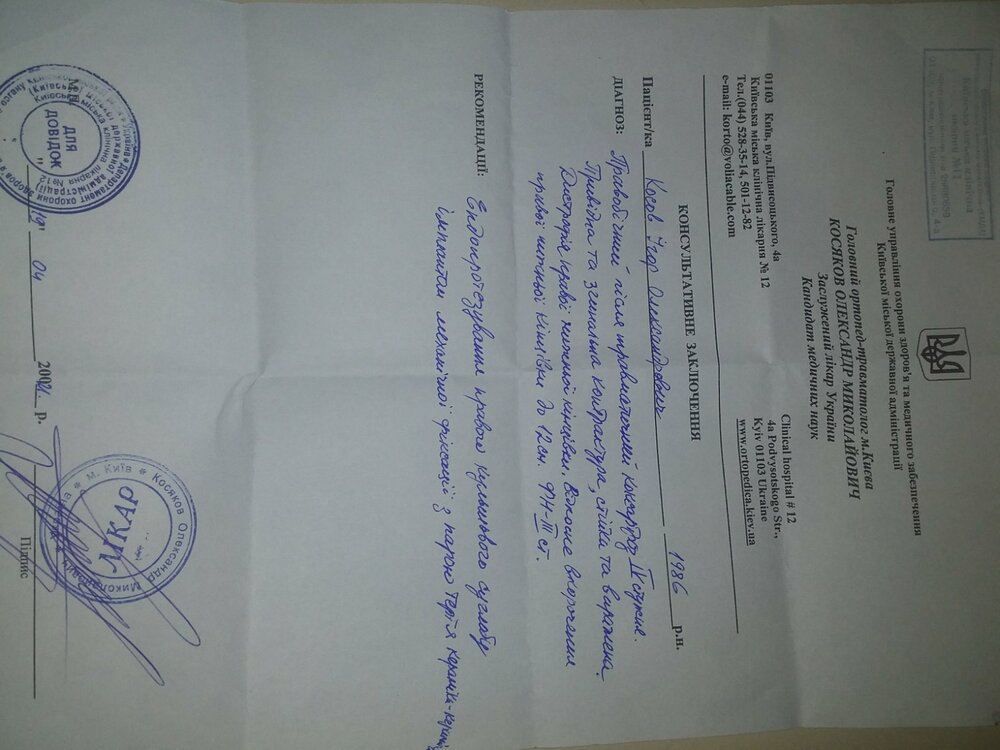 Головне управління охорони здоров'я та медичного забезпечення
Київської міської державної адміністрації
Головний ортопед-травматолог м.Києва
КОСЯКОВ ОЛЕКСАНДР МИКОЛАЙОВИЧ
Заслужений лікар України
Кандидат медичних наук
01103 Київ, вул.Підвисоцького, 4а
Київська міська клінічна лікарня № 12
Тел.(044) 528-35-14, 501-12-82
e-mail: korto@voliacable.com
Clinical hospital # 12
4a Podvysotskogo Str.,
Kyiv 01103 Ukraine
www.ortopedica.kiev.ua
КОНСУЛЬТАТИВНЕ ЗАКЛЮЧЕННЯ
Пацієнт/ка Косов Ігор Олександрович 1986 р.н.
ДІАГНОЗ: Правобічний після травматичний коксартроз IV ступіню.
Привідна та згинальна контрактура, стійка та виражена.
Дистрофія правої нижньої кінцівки. Відносне вкорочення
правої нижньої кінцівки до 12см. ФН-III ст.
РЕКОМЕНДАЦІЇ: Ендопротезування правого кульшового суглобу
імплантом механічної фіксації з парою тертя кераміка-
04 200 р.
Підпис
ДЛЯ
ДОВІДОК
Київська міська клінічна лікарня №12
м. Київ * Косяков Олександр Миколайович
МКАР